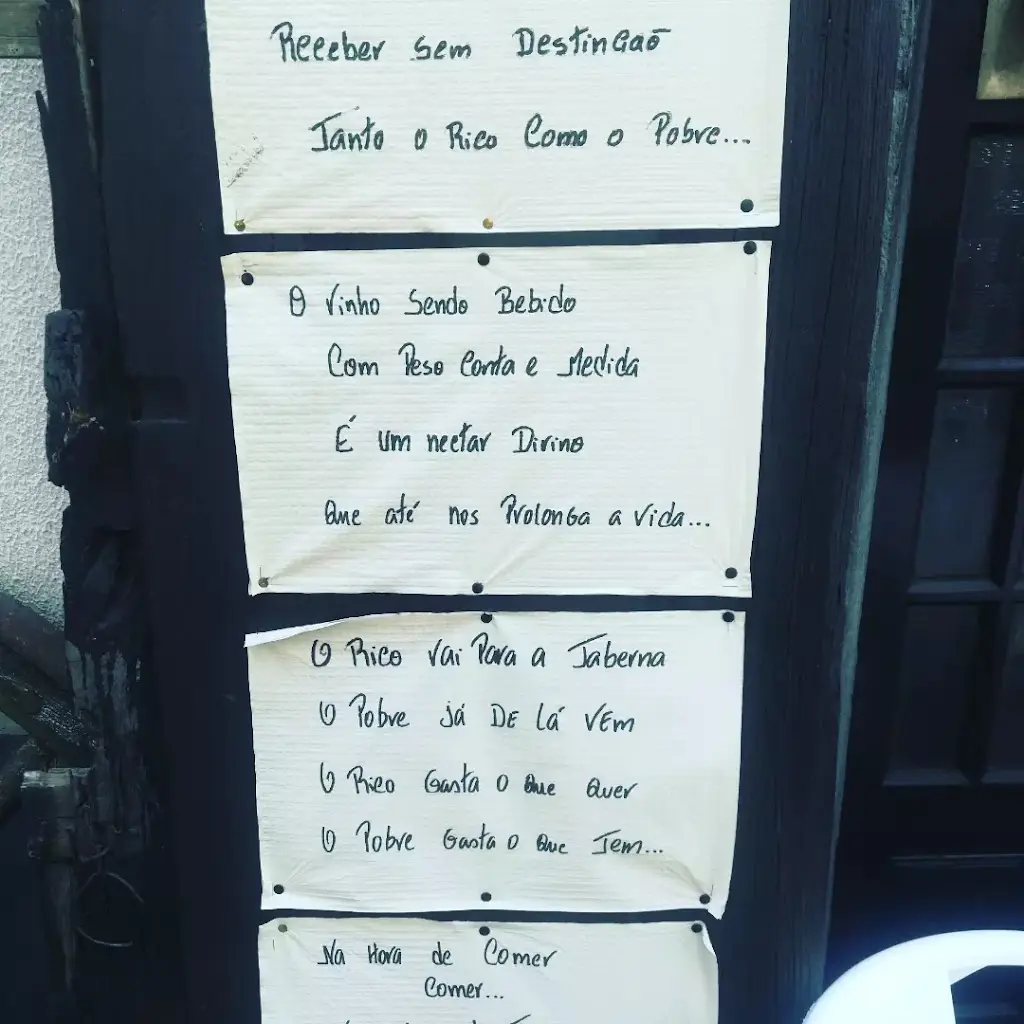 Receber sem Destingaõ
Tanto o Rico Como o Pobre...
O Vinho Sendo Bebido
Com Peso Conta e Medida
É um nectar Divino
Que até nos Prolonga a vida...
O Rico vai Para a Taberna
O Pobre já DE Lá VEm
O Rico Gasta o Que Quer
O Pobre Gasta o Que Tem...
Na Hora de Comer
Comer...